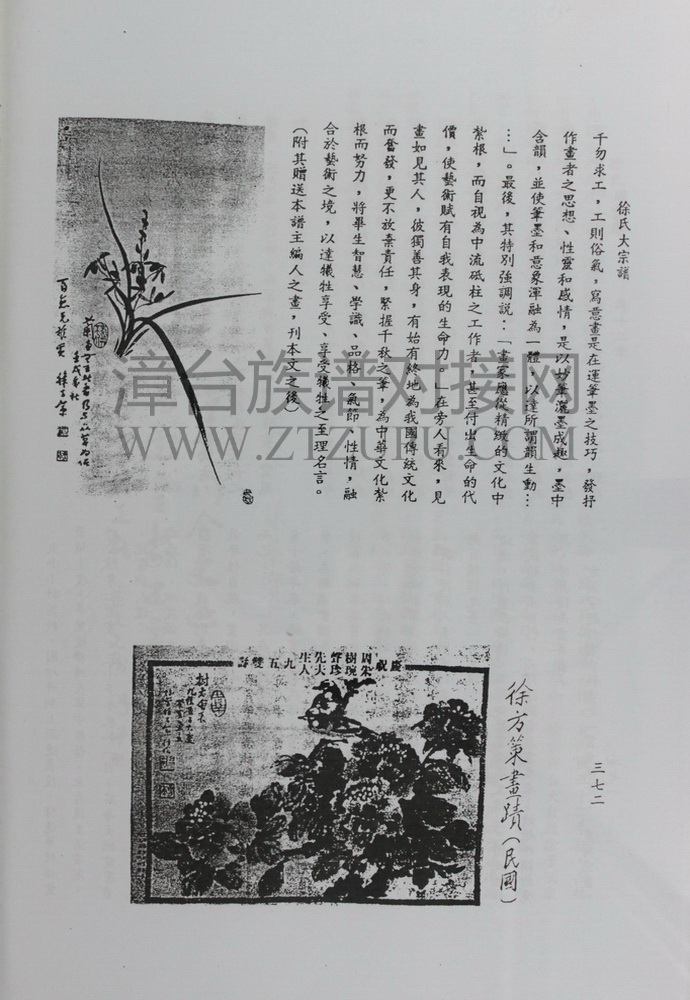 徐氏大宗譜
千勿求工，工則俗氣，寫意畫是在運筆墨之技巧，發抒
作畫者之思想、性靈和感情，是以妙筆灑墨成趣，墨中
含韻，並使筆墨和意象渾融為一體，以達所謂韻生動…
…」。最後，其特別強調說：「畫家應從精緻的文化中
紮根，而自視為中流砥柱之工作者，甚至付出生命的代
價，使藝術賦有自我表現的生命力。」在旁人看來，見
畫如見其人，彼獨善其身，有始有終地為我國傳統文化
而奮發，更不放棄責任，緊握千秋之筆，為中華文化紮
根而努力，將畢生智慧、學識、品格、氣節、性情，融
合於藝術之境，以達犧牲享受、享受犧牲之至理名言。
（附其贈送本譜主編人之畫，刊本文之後）
三七二
徐方策畫蹟（民國）
慶祝周樹聲先生朱琬珍夫人九五雙壽
漳台族谱对接网
WWW.ZTZUPU.COM